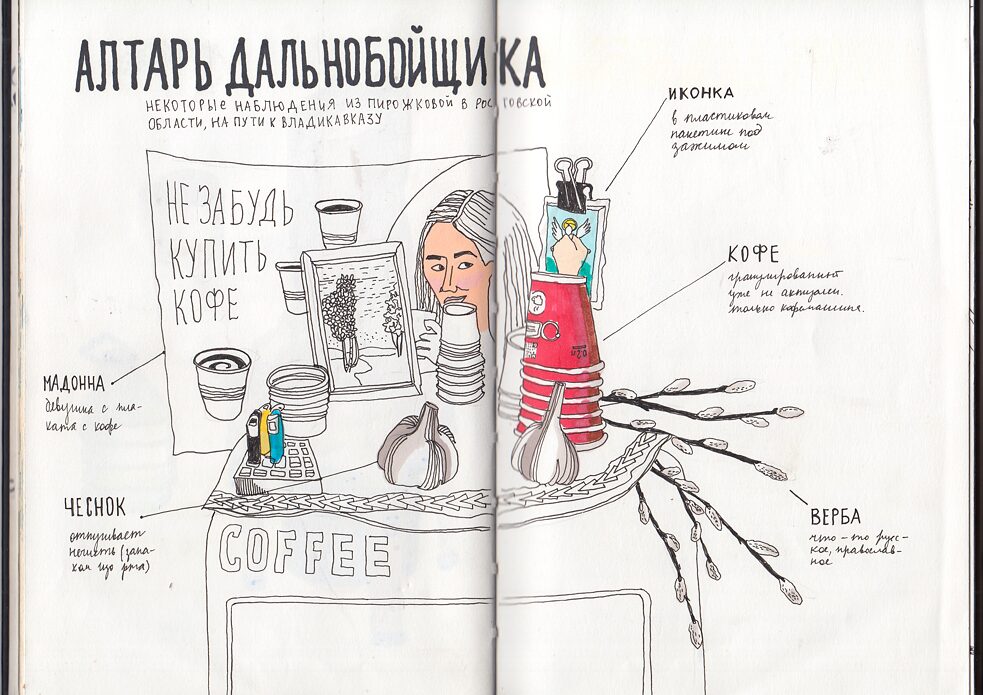 АЛТАРЬ ДАЛЬНОБОЙЩИКА
НЕКОТОРЫЕ НАБЛЮДЕНИЯ ИЗ ПИРОЖКОВОЙ В РОСТОВСКОЙ
ОБЛАСТИ, НА ПУТИ К ВЛАДИКАВКАЗУ
НЕ ЗАБУДЬ
КУПИТЬ
КОФЕ
ИКОНКА
в пластиковом
пакетике под
зажимом
КОФЕ
гранулированный
уже не актуален.
только кофемашина.
МАДОННА
девушка с пла-
ката с кофе
ЧЕСНОК
отпугивает
нечисть (запа-
хом изо рта)
ВЕРБА
что-то русс-
кое, православ-
ное
0.2л
COFFEE